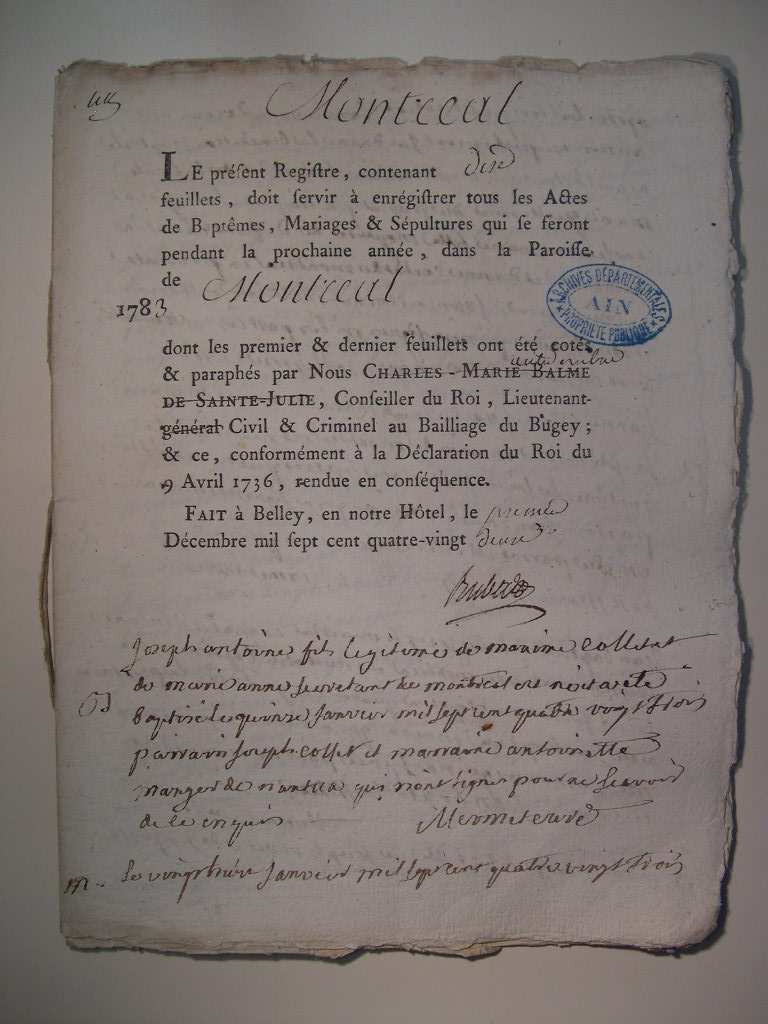 Montreal
LE préſent Regiſtre, contenant dix
feuillets, doit ſervir à enrégiſtrer tous les Actes
de B ptêmes, Mariages & Sépultures qui ſe feront
pendant la prochaine année, dans la Paroiſſe
de Montreal
1783
ARCHIVES DÉPARTEMENTALES
AIN
PROPRIÉTÉ PUBLIQUE
dont les premier & dernier feuillets ont été cotés
& paraphés par Nous CHARLES - MARIE BALME
DE SAINTE-JULIE, Conſeiller du Roi, Lieutenant-
général Civil & Criminel au Bailliage du Bugey;
& ce, conformément à la Déclaration du Roi du
9 Avril 1736, rendue en conſéquence.
FAIT à Belley, en notre Hôtel, le premier
Décembre mil ſept cent quatre-vingt deux
Joseph antoine fils legitime de maxime Collet et
de marie anne de montreal est né et a eté
Baptisé le quinze Janvier mil sept cent quatre vingt trois
parrain Joseph Collet et marraine antoinette
de nantua qui n'ont signé pour ne scavoir
de ce enquis curé
Le vingt huit Janvier mil sept cent quatre vingt trois